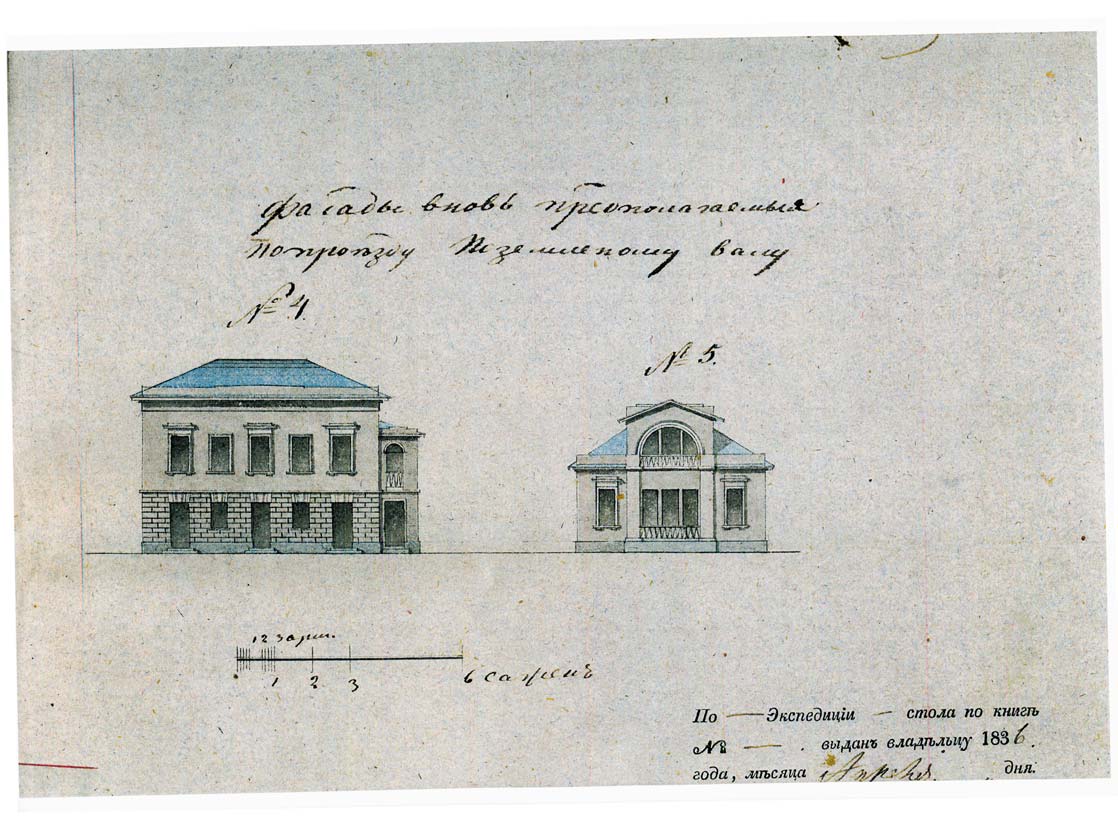 Фасады вновь предполагаемыя
по проѣзду к земляному валу
№ 4.
№ 5.
1 2 3 арш.
1 2 3
6 саженъ
По — Экспедиціи — стола по книгѣ
№ — . выданъ владѣльцу 1836.
года, мѣсяца Апрѣля дня.